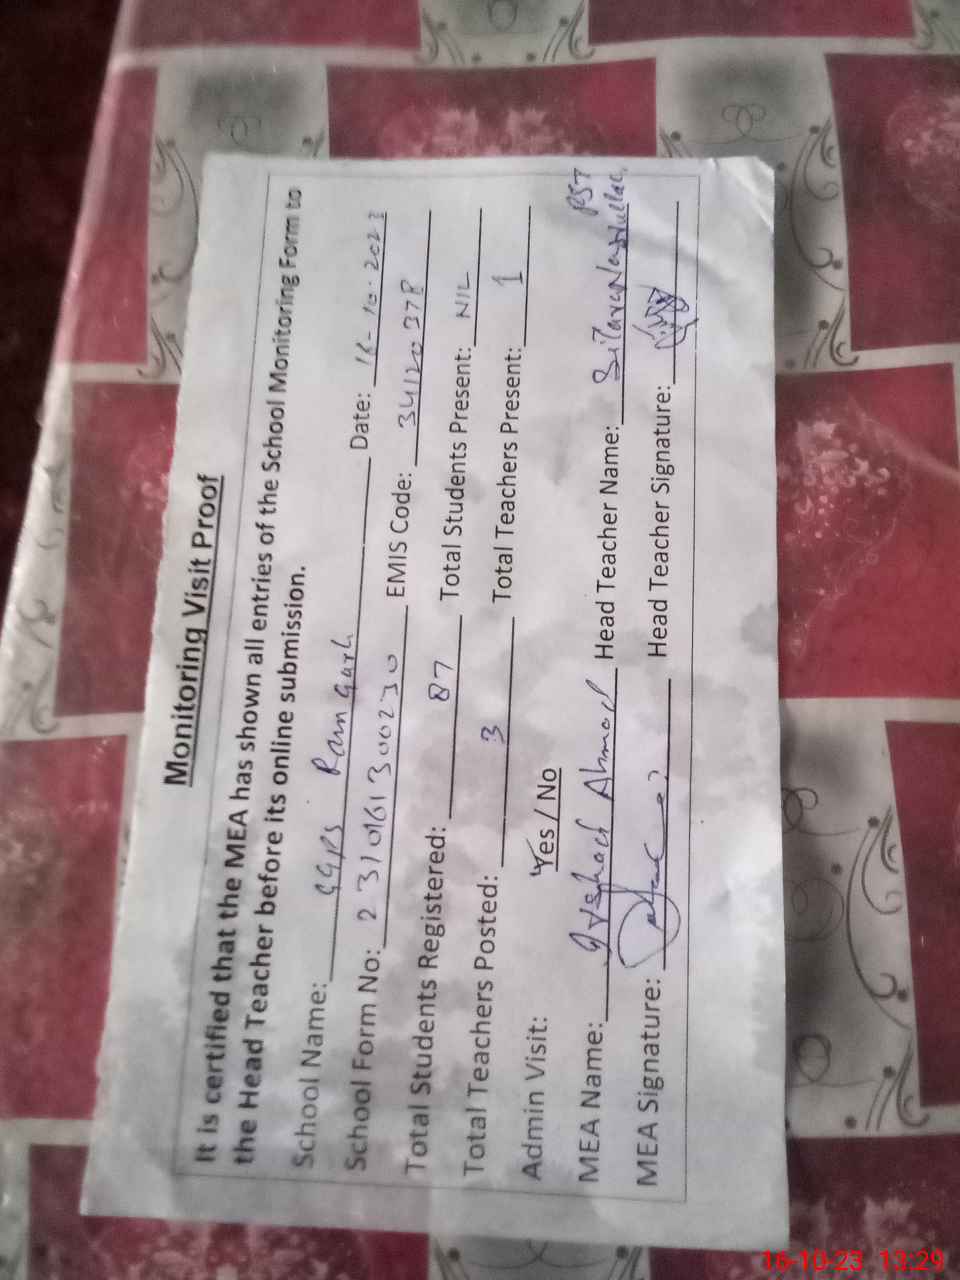 Monitoring Visit Proof
It is certified that the MEA has shown all entries of the School Monitoring Form to
the Head Teacher before its online submission.
School Name: GGPS Ram Garh Date: 16-10-2023
School Form No: 2310161300230 EMIS Code: 34120378
Total Students Registered: 87 Total Students Present: NIL
Total Teachers Posted: 3 Total Teachers Present: 1
Admin Visit: Yes / No
MEA Name: Arshad Ahmad Head Teacher Name: PST
MEA Signature: Head Teacher Signature:
16-10-23 13:29